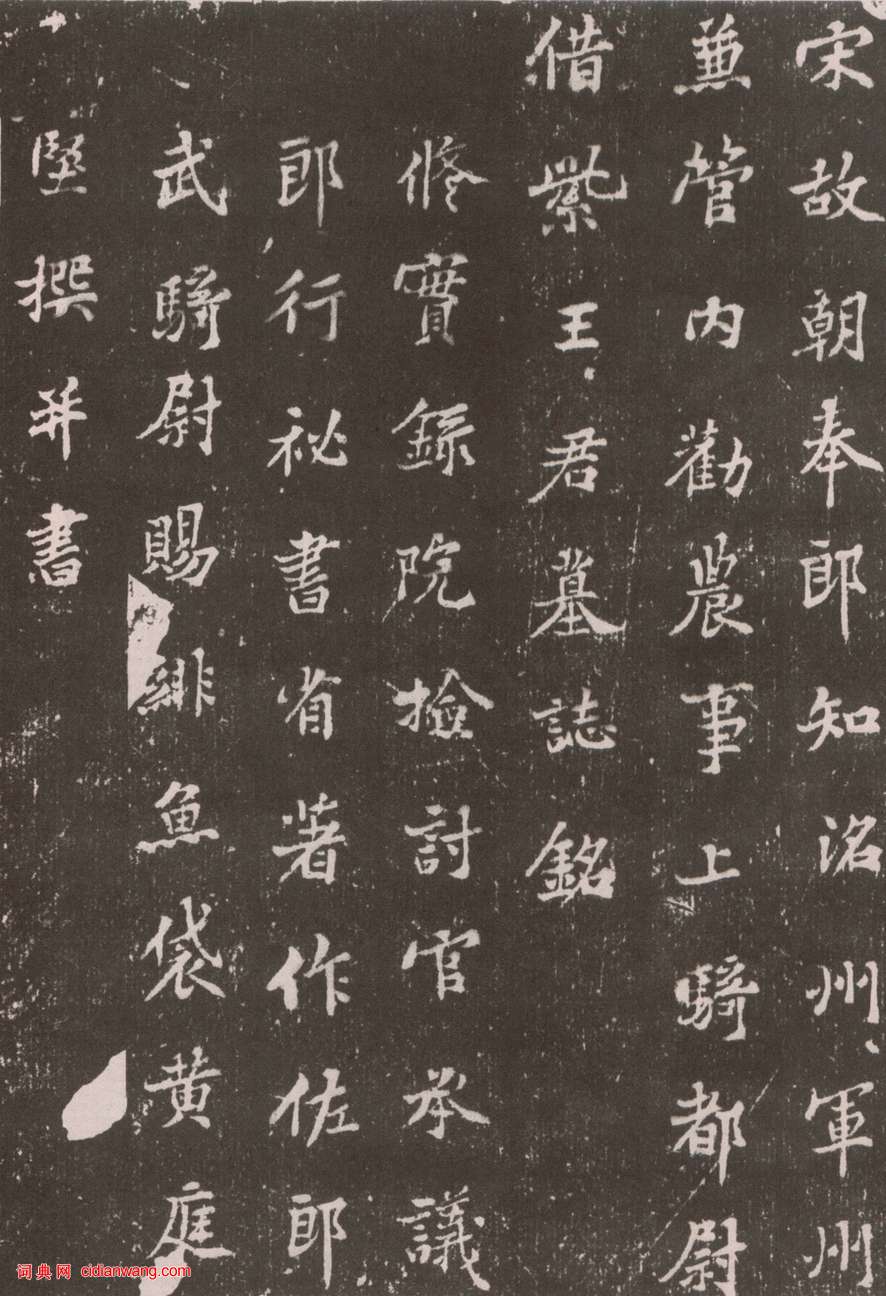 宋故朝奉郎知洺州軍州
兼管内勸農事上騎都尉
借紫王君墓誌銘
修實錄院檢討官承議
郎行祕書省著作佐郎
武騎尉賜緋魚袋黄庭
堅撰并書
词典网 cidianwang.com